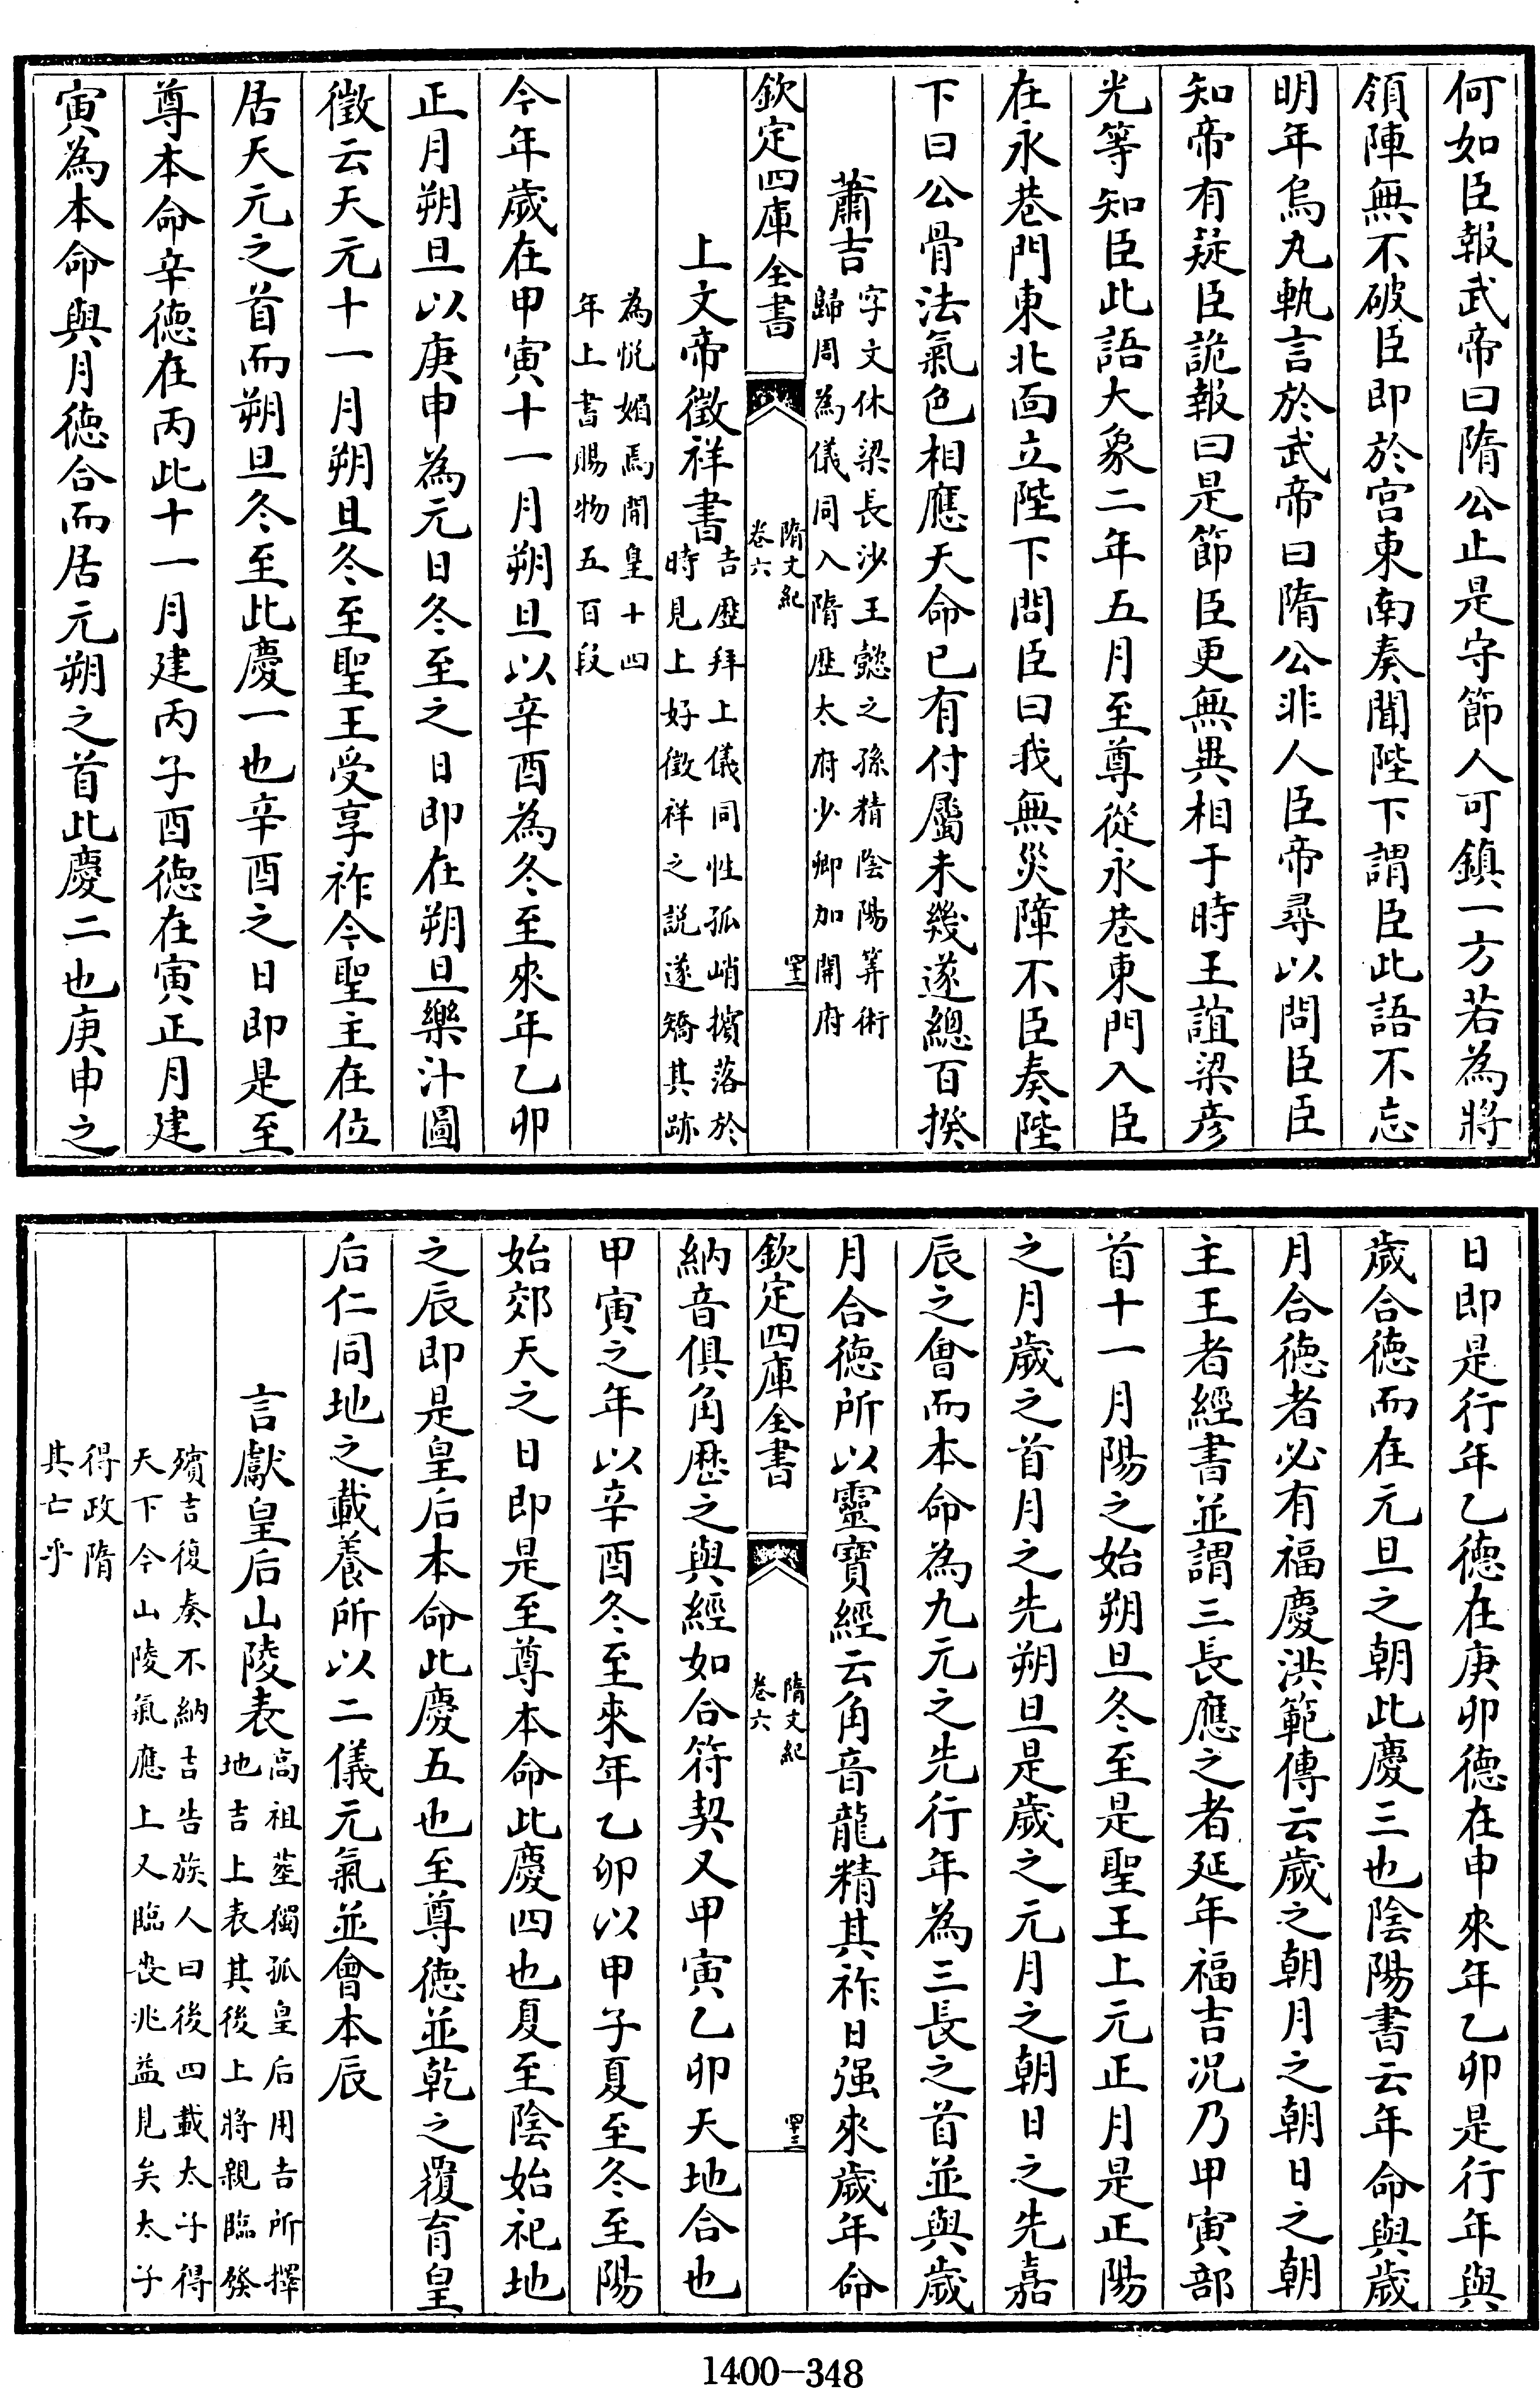 何如臣報武帝曰隋公止是守節人可鎮一方若為將
領陣無不破臣即於宮東南奏聞陛下謂臣此語不忘
明年烏丸軌言於武帝曰隋公非人臣帝尋以問臣臣
知帝有疑臣詭報曰是節臣更無異相于時王誼梁彥
光等知臣此語大象二年五月至尊從永巷東門入臣
在永巷門東北面立陛下問臣曰我無災障不臣奏陛
下曰公骨法氣色相應天命已有付屬未幾遂總百揆
蕭吉
字文休梁長沙王懿之孫精陰陽筭術
歸周為儀同入隋歴太府少卿加開府
欽定四庫全書
隋文紀
卷六
四十二
上文帝徵祥書
吉歴拜上儀同性孤峭擯落於
時見上好徵祥之説遂矯其跡
為悦媚焉開皇十四
年上書賜物五百段
今年歲在甲寅十一月朔旦以辛酉為冬至來年乙卯
正月朔旦以庚申為元日冬至之日即在朔旦樂汁圖
徵云天元十一月朔旦冬至聖王受享祚今聖主在位
居天元之首而朔旦冬至此慶一也辛酉之日即是至
尊本命辛德在丙此十一月建丙子酉德在寅正月建
寅為本命與月德合而居元朔之首此慶二也庚申之
日即是行年乙德在庚卯德在申來年乙卯是行年與
歲合德而在元旦之朝此慶三也陰陽書云年命與歲
月合德者必有福慶洪範傳云歲之朝月之朝日之朝
主王者經書並謂三長應之者延年福吉况乃甲寅部
首十一月陽之始朔旦冬至是聖王上元正月是正陽
之月歲之首月之先朔旦是歲之元月之朝日之先嘉
辰之會而本命為九元之先行年為三長之首並與歲
月合德所以靈寶經云角音龍精其祚日强來歲年命
欽定四庫全書
隋文紀
卷六
四十三
納音俱角歴之與經如合符契又甲寅乙卯天地合也
甲寅之年以辛酉冬至來年乙卯以甲子夏至冬至陽
始郊天之日即是至尊本命此慶四也夏至陰始祀地
之辰即是皇后本命此慶五也至尊德並乾之覆育皇
后仁同地之載養所以二儀元氣並會本辰
言獻皇后山陵表
高祖塟獨孤皇后用吉所擇
地吉上表其後上將親臨發
殯吉復奏不納吉告族人曰後四載太子得
天下今山陵氣應上又臨喪兆益見矣太子
得政隋
其亡乎
1400-348